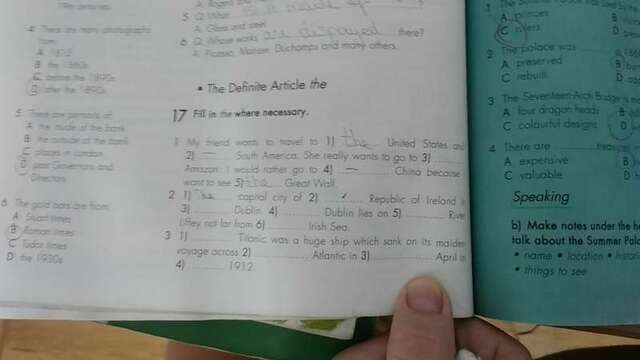 A: Rogers and
5 Q: What
A: Glass and steel.
6 Q: Whose works are displayed there?
A: Picasso, Matisse, Duchamps and many others.
4 There are many photographs
from
A 1812
B the 1860s
C before the 1890s
D after the 1890s
5 There are portraits of
A the inside of the bank
B the outside of the bank
C places in London
D past Governors and
Directors
6 The gold bars are from
A Stuart times
B Roman times
C Tudor times
D the 1930s
• The Definite Article the
17 Fill in the where necessary.
1 My friend wants to travel to 1) the United States and
2) — South America. She really wants to go to 3) ........
Amazon. I would rather go to 4) — China because I
want to see 5) the Great Wall.
2 1) The capital city of 2) ✓ Republic of Ireland is
3) ........ Dublin. 4) ........ Dublin lies on 5) ........ River
Liffey not far from 6) ........ Irish Sea.
3 1) ........ Titanic was a huge ship which sank on its maiden
voyage across 2) ........ Atlantic in 3) ........ April in
4) ........ 1912.
1 The Summer Palace
A princes
C rulers
2 The palace was
A preserved
C rebuilt
3 The Seventeen-Arch Bridge is
A four dragon heads B
C colourful designs D
4 There are treasures
A expensive B
C valuable
Speaking
b) Make notes under the
talk about the Summer
• name • location •
• things to see